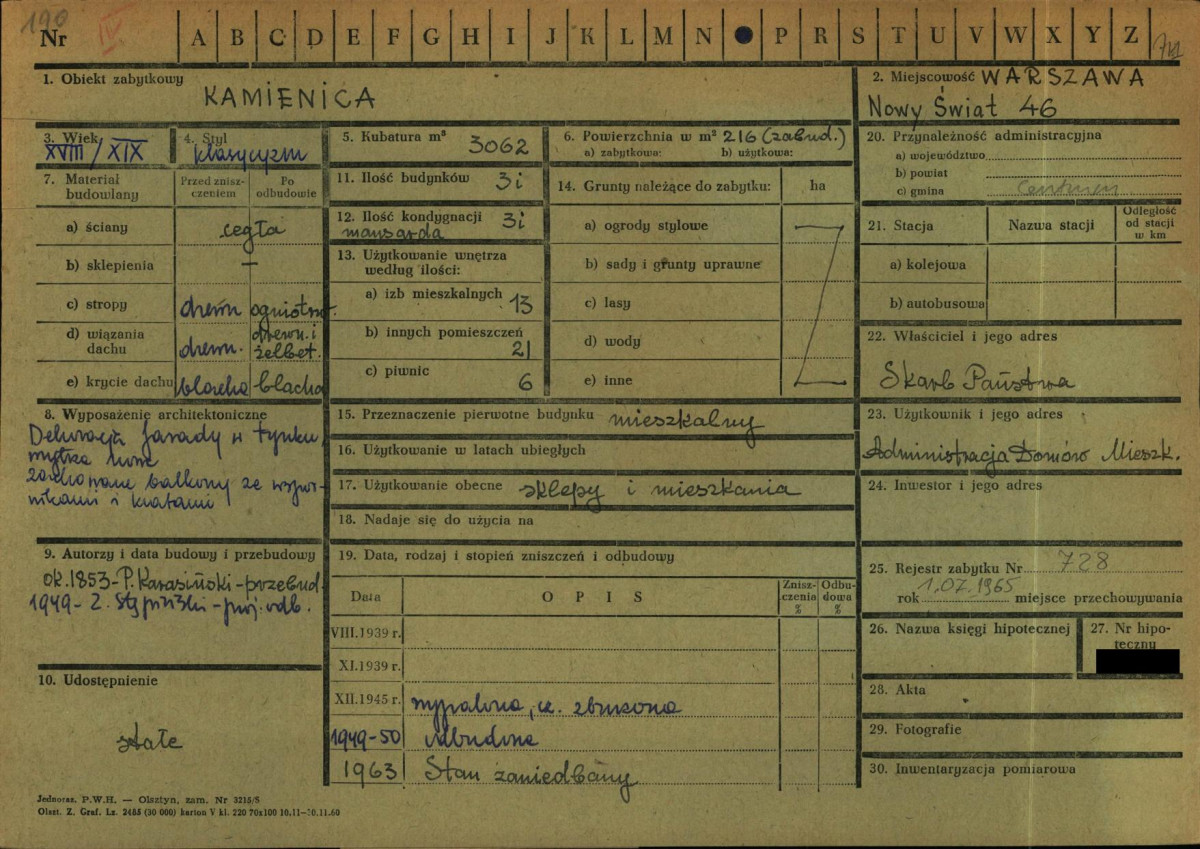 190
Nr IV A B C D E F G H I J K L M N P R S T U V W X Y Z
1. Obiekt zabytkowy
KAMIENICA
2. Miejscowość WARSZAWA
Nowy Świat 46
3. Wiek
XVIII/XIX
4. Styl
klasycyzm
5. Kubatura m³ 3062
6. Powierzchnia w m² 216 (zabud.)
a) zabytkowa: b) użytkowa:
7. Materiał budowlany
Przed zniszczeniem
Po odbudowie
a) ściany cegła
b) sklepienia —
c) stropy drewn ogniotrw.
d) wiązania dachu drewn. drewn. i żelbet.
e) krycie dachu blacha blacha
8. Wyposażenie architektoniczne
Dekoracja fasady w tynku
zachowane balkony ze wspor-
nikami i kratami
9. Autorzy i data budowy i przebudowy
ok. 1853 - P. Karasiński - przebud.
1949 - Z. Stępiński - proj. odb.
10. Udostępnienie
stałe
11. Ilość budynków 3i
12. Ilość kondygnacji 3i
mansarda
13. Użytkowanie wnętrza
według ilości:
a) izb mieszkalnych 13
b) innych pomieszczeń
21
c) piwnic 6
14. Grunty należące do zabytku: ha
a) ogrody stylowe
b) sady i grunty uprawne
c) lasy
d) wody
e) inne
15. Przeznaczenie pierwotne budynku mieszkalny
16. Użytkowanie w latach ubiegłych
17. Użytkowanie obecne sklepy i mieszkania
18. Nadaje się do użycia na
19. Data, rodzaj i stopień zniszczeń i odbudowy
Data OPIS Zniszczenia % Odbudowa %
VIII.1939 r.
XI.1939 r.
XII.1945 r. wypalona, cz. zburzona
1949-50 odbudowa
1963 Stan zaniedbany
20. Przynależność administracyjna
a) województwo
b) powiat
c) gmina
21. Stacja Nazwa stacji Odległość od stacji w km
a) kolejowa
b) autobusowa
22. Właściciel i jego adres
Skarb Państwa
23. Użytkownik i jego adres
Administracja Domów Mieszk.
24. Inwestor i jego adres
25. Rejestr zabytku Nr 728
rok 1.07.1965 miejsce przechowywania
26. Nazwa księgi hipotecznej
27. Nr hipoteczny
28. Akta
29. Fotografie
30. Inwentaryzacja pomiarowa
Jednoraz. P.W.H. — Olsztyn, zam. Nr 3215/S
Olszt. Z. Graf. Lz. 2485 (30 000) karton V kl. 220 70x100 10.11—30.11.60